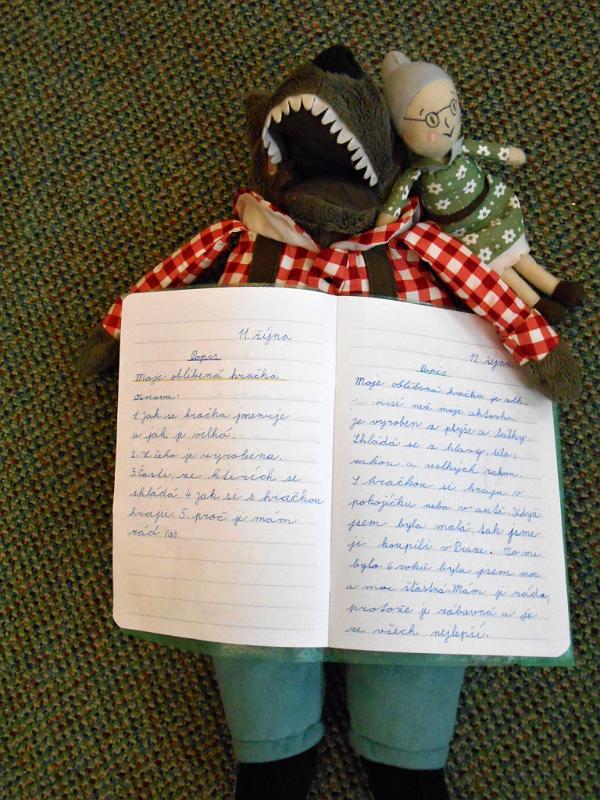 11. října
Popis
Moje oblíbená hračka
Osnova:
1. Jak se hračka jmenuje
a jak je velká.
2. Z čeho je vyrobena.
3. Části, ze kterích se
skládá. 4. Jak si s hračkou
hraju. 5. proč ji mám
rád (a).
12. října
Popis
Moje oblíbená hračka je vlk.
vissí než moje aktovka.
Je vyroben z plyše a látky.
Skládá se z hlavy, těla,
rukou a velkých
S hračkou si hraju v
pokojíčku nebo v autě. Když
jsem byla malá, tak jsme
ji koupili v Praze. To mi
bylo 6 roků byla jsem moc
a moc šťastná. Mám ji ráda,
protože je zábavná a je
ze všech nejlepší.